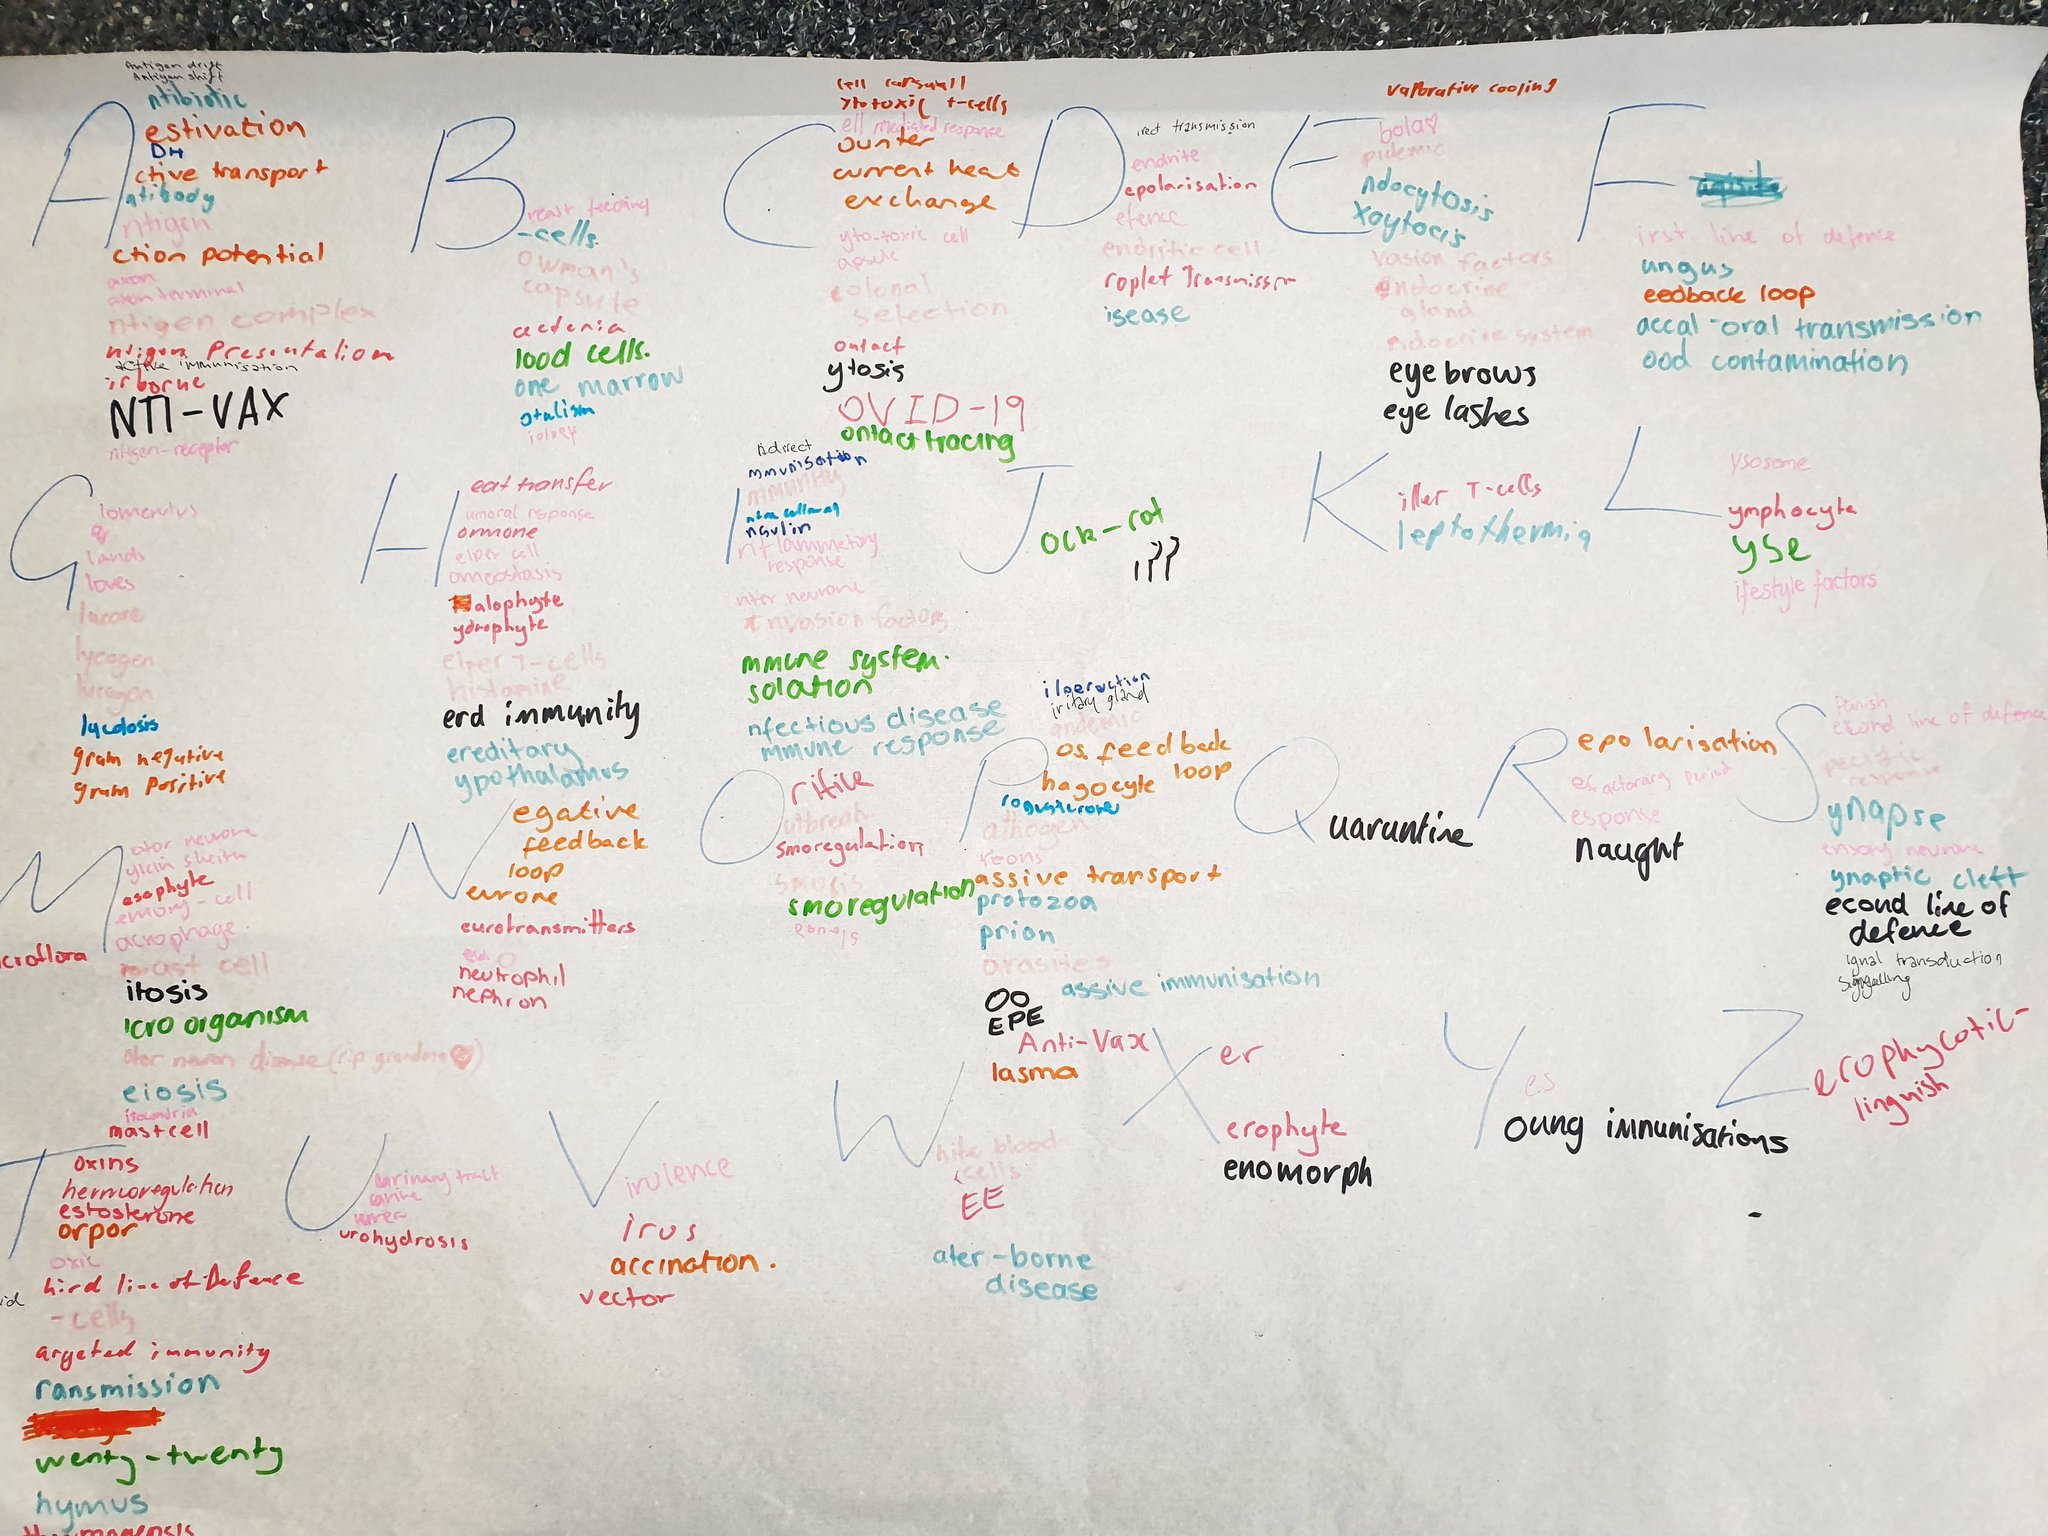 Antigen drift
Antigen shift
A
ntibiotic
estivation
DH
ctive transport
ntibody
ntigen
ction potential
axon
axon terminal
ntigen complex
ntigen Presentation
active immunisation
irborne
NTI-VAX
ntigen-receptor
B
reast feeding
-cells.
owman's
capsule
acteria
lood cells.
one marrow
otulism
iology
C
cell
ytotoxic t-cells
ell mediated response
ounter
current heat
exchange
yto-toxic cell
apsule
colonal
selection
ontact
ytosis
OVID-19
ontact tracing
D
irect transmission
endrite
epolarisation
efence
endritic cell
roplet Transmission
isease
E
vaporative cooling
bola♡
pidemic
ndocytosis
xoytocis
vasion factors
endocrine
gland
ndocrine system
eye brows
eye lashes
F
irst line of defence
ungus
eedback loop
aecal-oral transmission
ood contamination
G
lomerulus
lands
loves
lucose
lycogen
lucagon
lycolosis
gram negative
gram positive
H
eat transfer
umoral response
ormone
elper cell
omeostasis
alophyte
ydrophyte
elper T-cells
histamine
erd immunity
ereditary
ypothalamus
I
Indirect
mmunisation
mmunity
ntracellular
nsulin
nflammatory
response
nter neurone
Invasion factors
mmune system.
solation
nfectious disease
mmune response
J
ock-rot
K
iller T-cells
leptothermia
L
ysosome
ymphocyte
yse
ifestyle factors
M
otor neurone
yelin sheith
esophyte
emory-cell
acrophage.
icroflora
mast cell
itosis
icro organism
otor neuron disease (rip grandma♡)
eiosis
itocondria
mast cell
N
egative
feedback
loop
eurone
eurotransmitters
neutrophil
nephron
O
rifice
utbreak
smoregulation
smosis
smoregulation
P
iloerection
ituitary gland
andemic
os feedback
loop
hagocyte
rogesterone
athogen
reons
assive transport
protozoa
prion
arasites
assive immunisation
OO
EPE
Anti-Vax
lasma
Q
uaruntine
R
epolarisation
efractorary period
esponse
naught
S
Panish
econd line of defence
pecific
response
ynapse
ensory neurone
ynaptic cleft
econd line of
defence
ignal transduction
signalling
T
oxins
hermoregulation
estosterone
orpor
oxic
hird line of Defence
-cells
argeted immunity
ransmission
wenty-twenty
hymus
U
urinary tract
urine
urea
urohydrosis
V
irulence
irus
accination.
vector
W
hite blood
cells
EE
ater-borne
disease
X
er
erophyte
enomorph
Y
es
oung immunisations
Z
erophycotic-
linguish